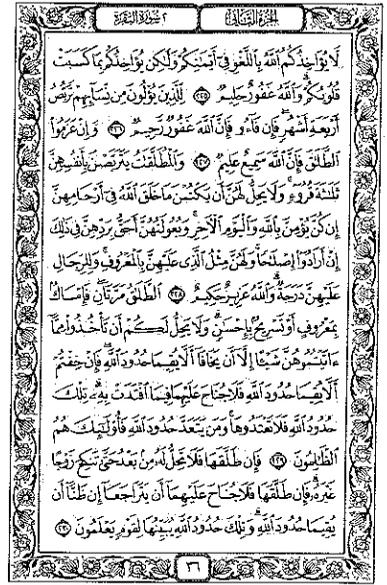 الجزء الثاني ٢ سورة البقرة
لَّا يُؤَاخِذُكُمُ ٱللَّهُ بِٱللَّغْوِ فِىٓ أَيْمَـٰنِكُمْ وَلَـٰكِن يُؤَاخِذُكُم بِمَا كَسَبَتْ
قُلُوبُكُمْ وَٱللَّهُ غَفُورٌ حَلِيمٌ ٢٢٥ لِّلَّذِينَ يُؤْلُونَ مِن نِّسَآئِهِمْ تَرَبُّصُ
أَرْبَعَةِ أَشْهُرٍ فَإِن فَآءُو فَإِنَّ ٱللَّهَ غَفُورٌ رَّحِيمٌ ٢٢٦ وَإِنْ عَزَمُوا۟
ٱلطَّلَـٰقَ فَإِنَّ ٱللَّهَ سَمِيعٌ عَلِيمٌ ٢٢٧ وَٱلْمُطَلَّقَـٰتُ يَتَرَبَّصْنَ بِأَنفُسِهِنَّ
ثَلَـٰثَةَ قُرُوٓءٍ وَلَا يَحِلُّ لَهُنَّ أَن يَكْتُمْنَ مَا خَلَقَ ٱللَّهُ فِىٓ أَرْحَامِهِنَّ
إِن كُنَّ يُؤْمِنَّ بِٱللَّهِ وَٱلْيَوْمِ ٱلْـَٔاخِرِ وَبُعُولَتُهُنَّ أَحَقُّ بِرَدِّهِنَّ فِى ذَٰلِكَ
إِنْ أَرَادُوٓا۟ إِصْلَـٰحًا وَلَهُنَّ مِثْلُ ٱلَّذِى عَلَيْهِنَّ بِٱلْمَعْرُوفِ وَلِلرِّجَالِ
عَلَيْهِنَّ دَرَجَةٌ وَٱللَّهُ عَزِيزٌ حَكِيمٌ ٢٢٨ ٱلطَّلَـٰقُ مَرَّتَانِ فَإِمْسَاكٌۢ
بِمَعْرُوفٍ أَوْ تَسْرِيحٌۢ بِإِحْسَـٰنٍ وَلَا يَحِلُّ لَكُمْ أَن تَأْخُذُوا۟ مِمَّآ
ءَاتَيْتُمُوهُنَّ شَيْـًٔا إِلَّآ أَن يَخَافَآ أَلَّا يُقِيمَا حُدُودَ ٱللَّهِ فَإِنْ خِفْتُمْ
أَلَّا يُقِيمَا حُدُودَ ٱللَّهِ فَلَا جُنَاحَ عَلَيْهِمَا فِيمَا ٱفْتَدَتْ بِهِۦ تِلْكَ
حُدُودُ ٱللَّهِ فَلَا تَعْتَدُوهَا وَمَن يَتَعَدَّ حُدُودَ ٱللَّهِ فَأُو۟لَـٰٓئِكَ هُمُ
ٱلظَّـٰلِمُونَ ٢٢٩ فَإِن طَلَّقَهَا فَلَا تَحِلُّ لَهُۥ مِنۢ بَعْدُ حَتَّىٰ تَنكِحَ زَوْجًا
غَيْرَهُۥ فَإِن طَلَّقَهَا فَلَا جُنَاحَ عَلَيْهِمَآ أَن يَتَرَاجَعَآ إِن ظَنَّآ أَن
يُقِيمَا حُدُودَ ٱللَّهِ وَتِلْكَ حُدُودُ ٱللَّهِ يُبَيِّنُهَا لِقَوْمٍ يَعْلَمُونَ ٢٣٠
٣٦